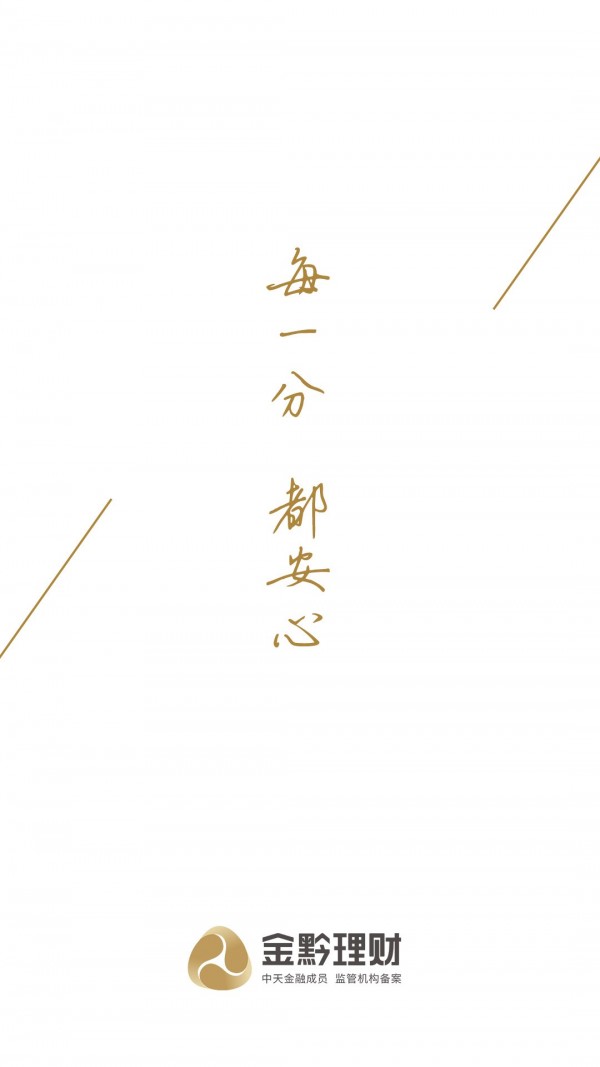 每一分 都安心
金黔理财
中天金融成员 监管机构备案